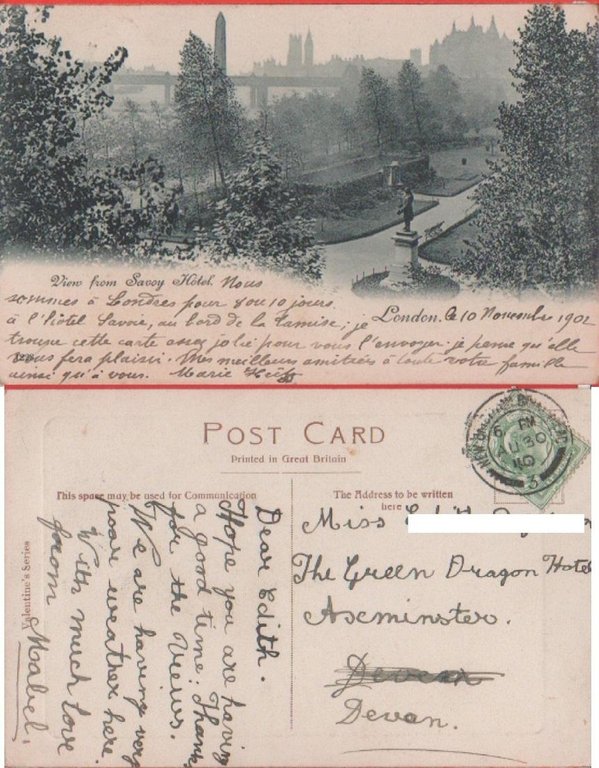 View from Savoy Hôtel. Nous
sommes à Londres pour 8 ou 10 jours
London. le 10 Novembre 1902
à l'hôtel Savoie, au bord de la Tamise; je
trouve cette carte assez jolie pour vous l'envoyer; je pense qu'elle
vous fera plaisir. Mes meilleurs amitiées à toute votre famille
ainsi qu'à vous. Marie
POST CARD
Printed in Great Britain
This space may be used for Communication
The Address to be written
here
Valentine's Series
Dear Edith.
Hope you are having
a good time: Thanks
for the Views.
We are having very
poor weather here.
With much love
from
Mabel.
Miss
The Green Dragon Hotel
Axminster.
Devon.
6 PM
AU 30
10
3